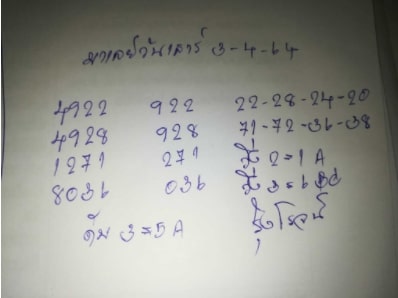 มาเลย์วันเสาร์ 3-4-64
4922 922 22-28-24-20
4928 928 71-72-36-38
1271 271 2=1 A
8036 036 3=6
3=5A